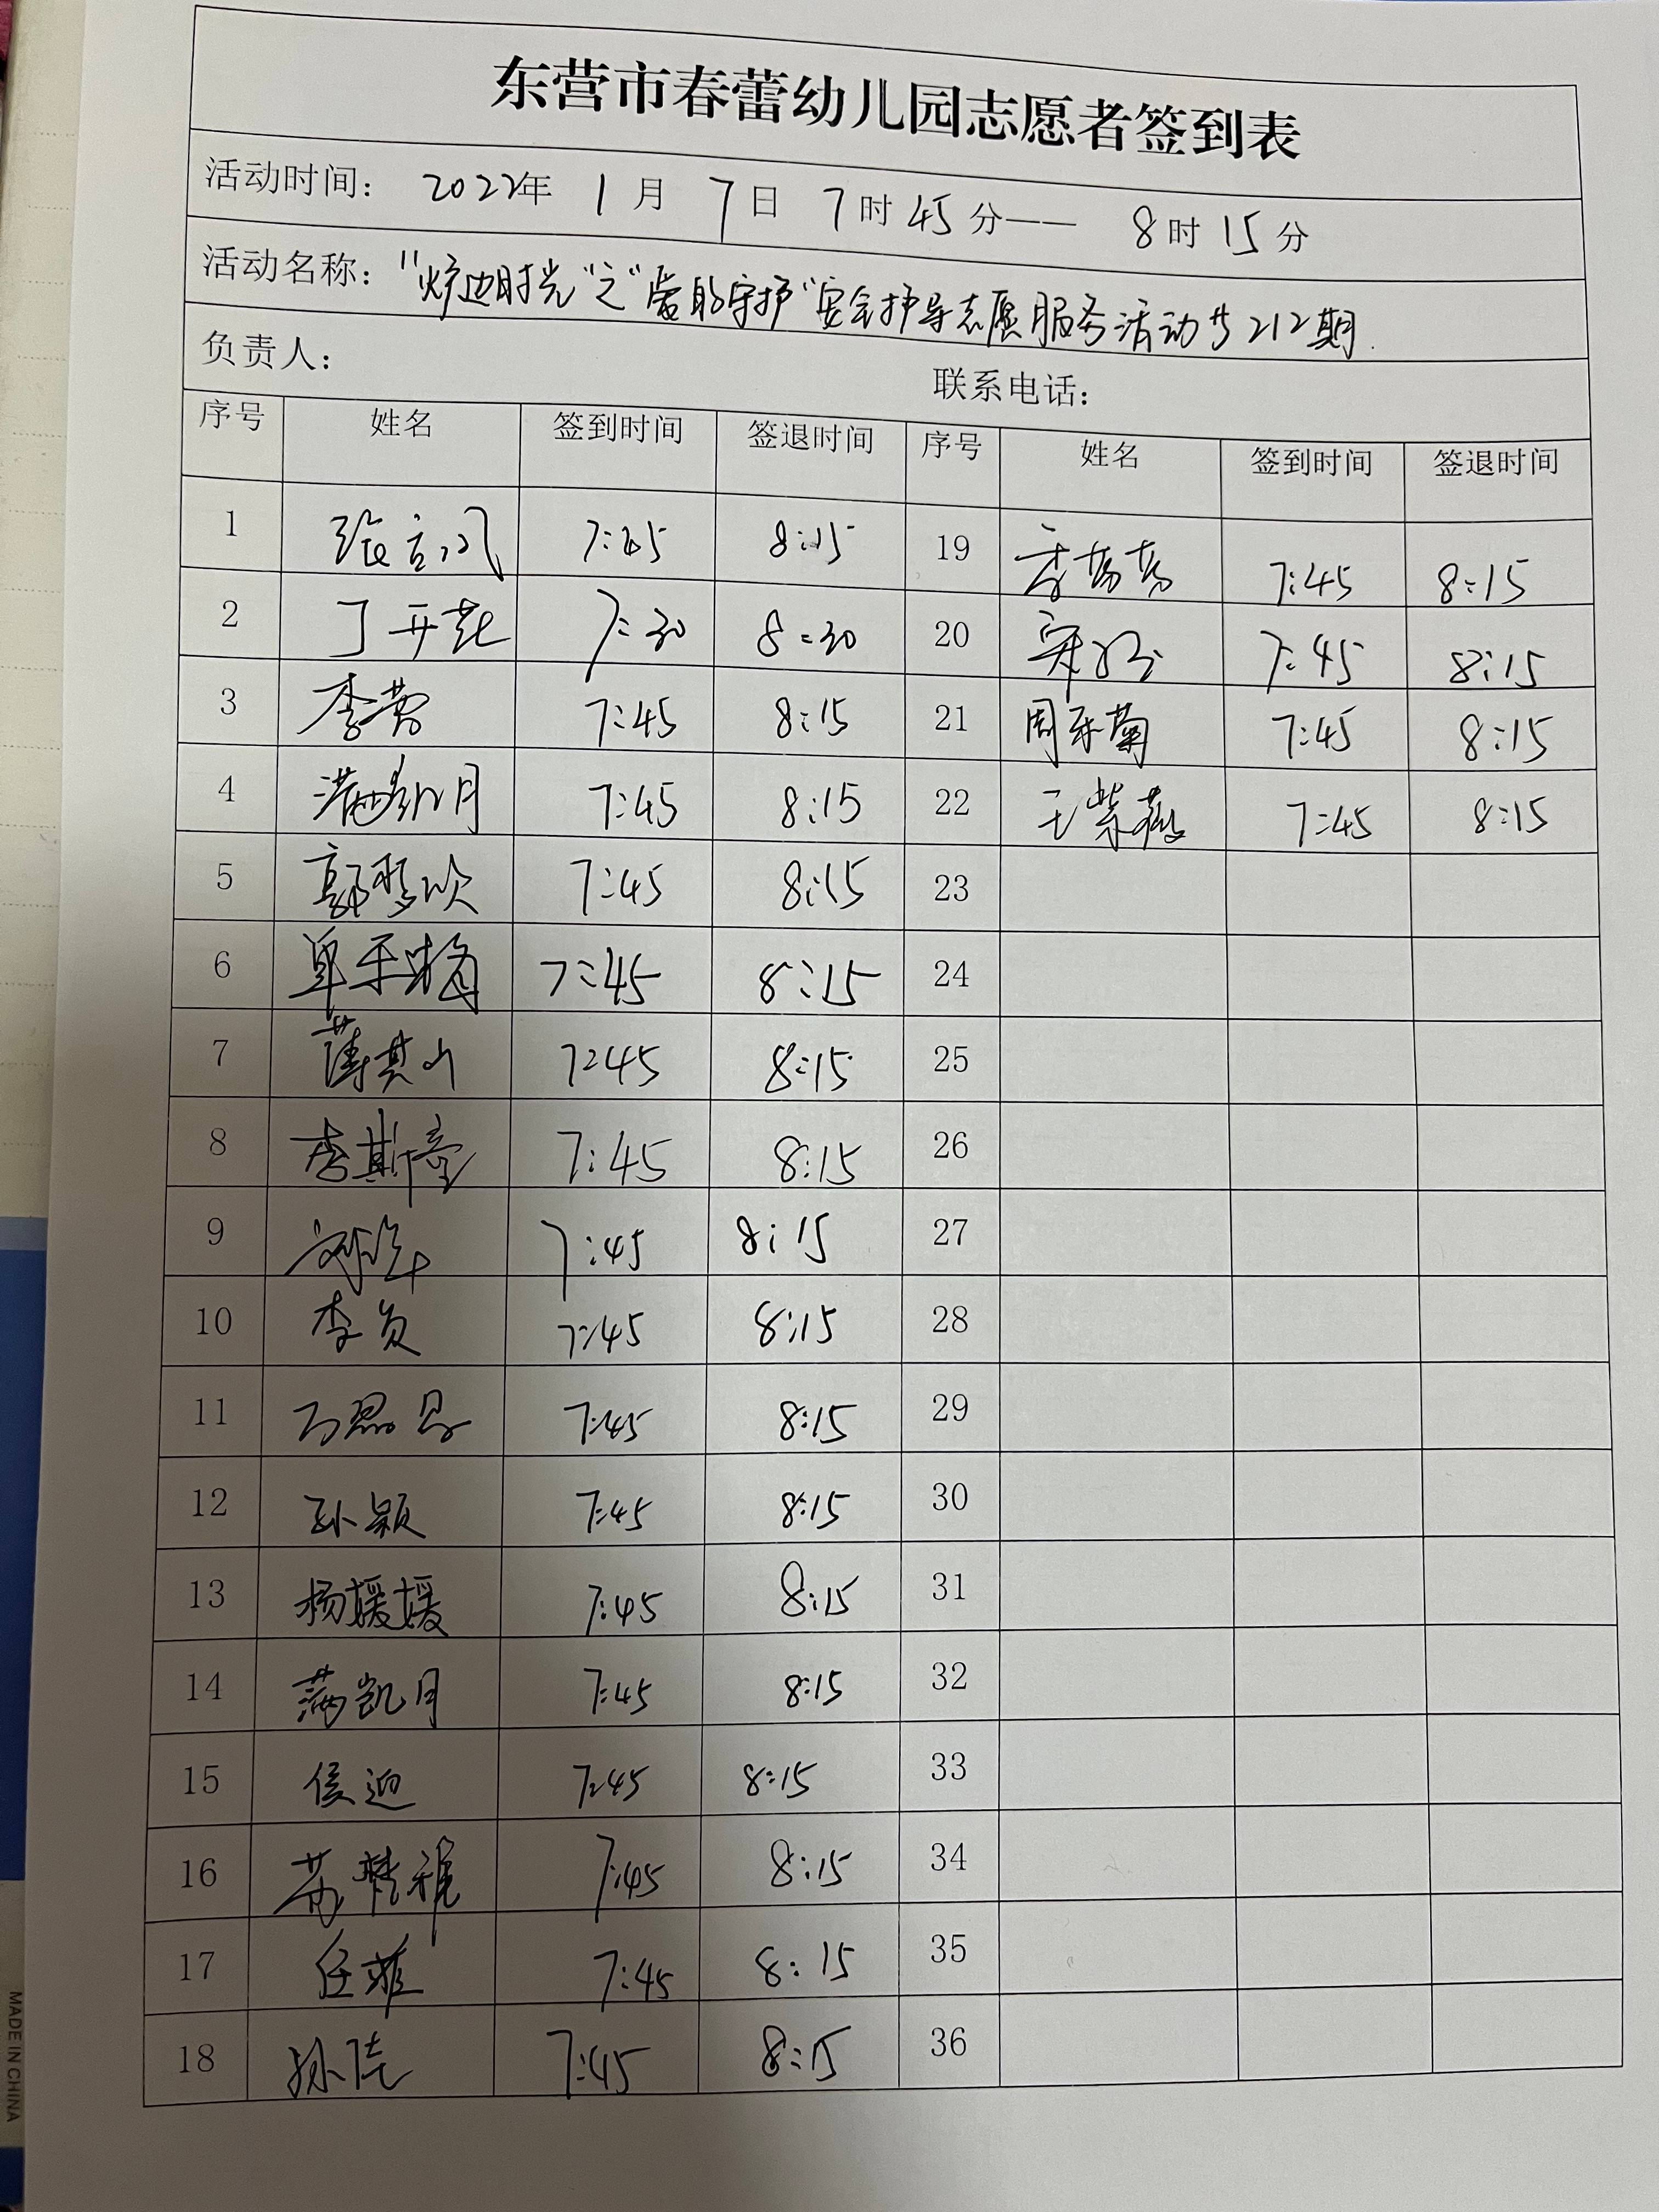 东营市春蕾幼儿园志愿者签到表
活动时间: 2022年 1月 7日 7时45分—— 8时15分
活动名称: "炉边时光"之"蕾的守护"安全护导志愿服务活动 212期
负责人: 联系电话:
序号 姓名 签到时间 签退时间 序号 姓名 签到时间 签退时间
1 7:45 8:15 19 7:45 8:15
2 丁开花 7:30 8:30 20 7:45 8:15
3 李营 7:45 8:15 21 周乐菊 7:45 8:15
4 7:45 8:15 22 王紫薇 7:45 8:15
5 郭梦欣 7:45 8:15 23
6 7:45 8:15 24
7 薄其山 7:45 8:15 25
8 李斯童 7:45 8:15 26
9 7:45 8:15 27
10 李贞 7:45 8:15 28
11 7:45 8:15 29
12 孙颖 7:45 8:15 30
13 杨媛媛 7:45 8:15 31
14 满凯月 7:45 8:15 32
15 侯迎 7:45 8:15 33
16 苏梦雅 7:45 8:15 34
17 任菲 7:45 8:15 35
18 7:45 8:15 36
MADE IN CHINA